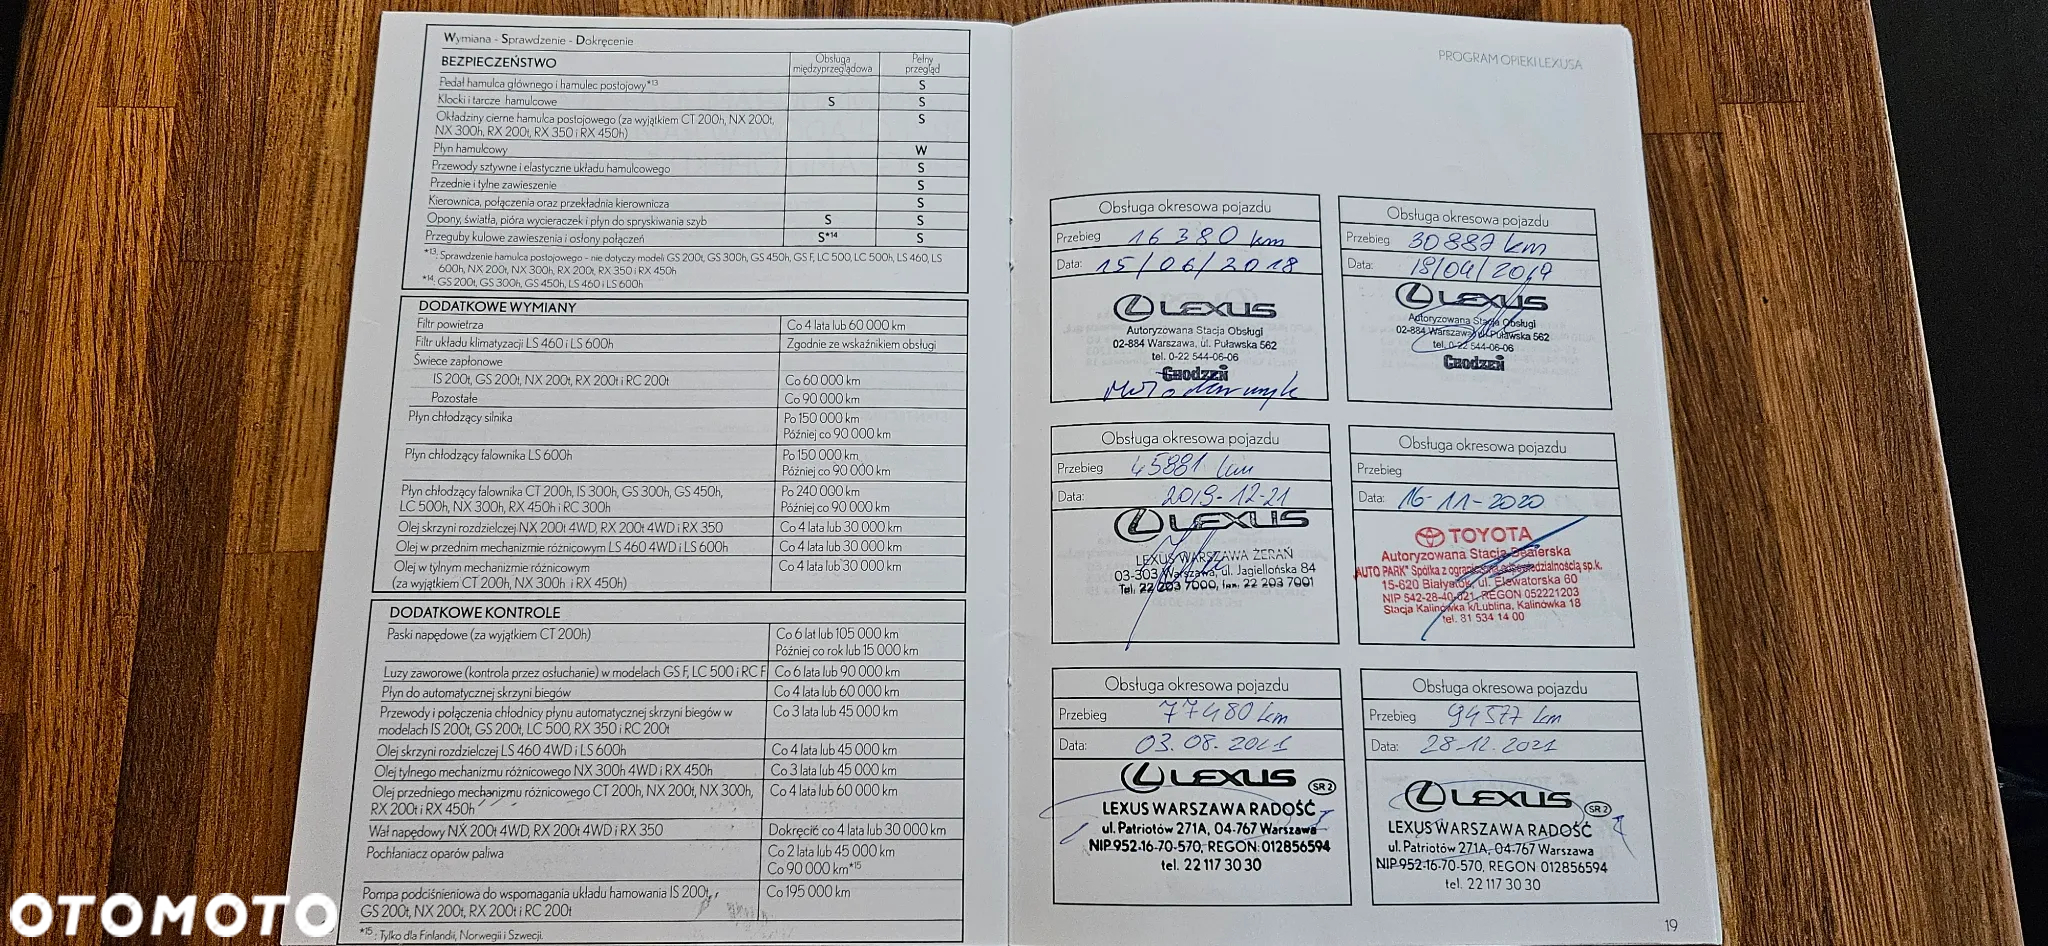 Wymiana - Sprawdzenie - Dokręcenie
BEZPIECZEŃSTWO
Obsługa międzyprzeglądowa
Pełny przegląd
Pedał hamulca głównego i hamulec postojowy*13 S
Klocki i tarcze hamulcowe S S
Okładziny cierne hamulca postojowego (za wyjątkiem CT 200h, NX 200t, S
NX 300h, RX 200t, RX 350 i RX 450h)
Płyn hamulcowy W
Przewody sztywne i elastyczne układu hamulcowego S
Przednie i tylne zawieszenie S
Kierownica, połączenia oraz przekładnia kierownicza S
Opony, światła, pióra wycieraczek i płyn do spryskiwania szyb S S
Przeguby kulowe zawieszenia i osłony połączeń S*14 S
*13: Sprawdzenie hamulca postojowego - nie dotyczy modeli GS 200t, GS 300h, GS 450h, GS F, LC 500, LC 500h, LS 460, LS
600h, NX 200t, NX 300h, RX 200t, RX 350 i RX 450h
*14: GS 200t, GS 300h, GS 450h, LS 460 i LS 600h
DODATKOWE WYMIANY
Filtr powietrza Co 4 lata lub 60 000 km
Filtr układu klimatyzacji LS 460 i LS 600h Zgodnie ze wskaźnikiem obsługi
Świece zapłonowe
IS 200t, GS 200t, NX 200t, RX 200t i RC 200t Co 60 000 km
Pozostałe Co 90 000 km
Płyn chłodzący silnika Po 150 000 km
Później co 90 000 km
Płyn chłodzący falownika LS 600h Po 150 000 km
Później co 90 000 km
Płyn chłodzący falownika CT 200h, IS 300h, GS 300h, GS 450h, Po 240 000 km
LC 500h, NX 300h, RX 450h i RC 300h Później co 90 000 km
Olej skrzyni rozdzielczej NX 200t 4WD, RX 200t 4WD i RX 350 Co 4 lata lub 30 000 km
Olej w przednim mechanizmie różnicowym LS 460 4WD i LS 600h Co 4 lata lub 30 000 km
Olej w tylnym mechanizmie różnicowym Co 4 lata lub 30 000 km
(za wyjątkiem CT 200h, NX 300h i RX 450h)
DODATKOWE KONTROLE
Paski napędowe (za wyjątkiem CT 200h) Co 6 lat lub 105 000 km
Później co rok lub 15 000 km
Luzy zaworowe (kontrola przez osłuchanie) w modelach GS F, LC 500 i RC F Co 6 lata lub 90 000 km
Płyn do automatycznej skrzyni biegów Co 4 lata lub 60 000 km
Przewody i połączenia chłodnicy płynu automatycznej skrzyni biegów w Co 3 lata lub 45 000 km
modelach IS 200t, GS 200t, LC 500, RX 350 i RC 200t
Olej skrzyni rozdzielczej LS 460 4WD i LS 600h Co 4 lata lub 45 000 km
Olej tylnego mechanizmu różnicowego NX 300h 4WD i RX 450h Co 3 lata lub 45 000 km
Olej przedniego mechanizmu różnicowego CT 200h, NX 200t, NX 300h, Co 4 lata lub 60 000 km
RX 200t i RX 450h
Wał napędowy NX 200t 4WD, RX 200t 4WD i RX 350 Dokręcić co 4 lata lub 30 000 km
Pochłaniacz oparów paliwa Co 2 lata lub 45 000 km
Co 90 000 km*15
Pompa podciśnieniowa do wspomagania układu hamowania IS 200t, Co 195 000 km
GS 200t, NX 200t, RX 200t i RC 200t
*15: Tylko dla Finlandii, Norwegii i Szwecji.
PROGRAM OPIEKI LEXUSA
Obsługa okresowa pojazdu
Przebieg 16 380 km
Data: 15/06/2018
LEXUS
Autoryzowana Stacja Obsługi
02-884 Warszawa, ul. Puławska 562
tel. 0-22 544-06-06
Chodzeń
Obsługa okresowa pojazdu
Przebieg 30887 km
Data: 18/04/2019
LEXUS
Autoryzowana Stacja Obsługi
02-884 Warszawa, ul. Puławska 562
tel. 0-22 544-06-06
Chodzeń
Obsługa okresowa pojazdu
Przebieg 45881 km
Data: 2019-12-21
LEXUS
LEXUS WARSZAWA ŻERAŃ
03-303 Warszawa, ul. Jagiellońska 84
Tel. 22 203 7000, fax. 22 203 7001
Obsługa okresowa pojazdu
Przebieg
Data: 16-11-2020
TOYOTA
Autoryzowana Stacja Dealerska
"AUTO PARK" Spółka z ograniczoną odpowiedzialnością sp.k.
15-620 Białystok, ul. Elewatorska 60
NIP 542-28-40-621, REGON 052221203
Stacja Kalinówka k/Lublina, Kalinówka 18
tel. 81 534 14 00
Obsługa okresowa pojazdu
Przebieg 77480 km
Data: 03.08.2021
LEXUS SR 2
LEXUS WARSZAWA RADOŚĆ
ul. Patriotów 271A, 04-767 Warszawa
NIP 952-16-70-570, REGON: 012856594
tel. 22 117 30 30
Obsługa okresowa pojazdu
Przebieg 94577 km
Data: 28.12.2021
LEXUS SR 2
LEXUS WARSZAWA RADOŚĆ
ul. Patriotów 271A, 04-767 Warszawa
NIP 952-16-70-570, REGON 012856594
tel. 22 117 30 30
19
OTOMOTO